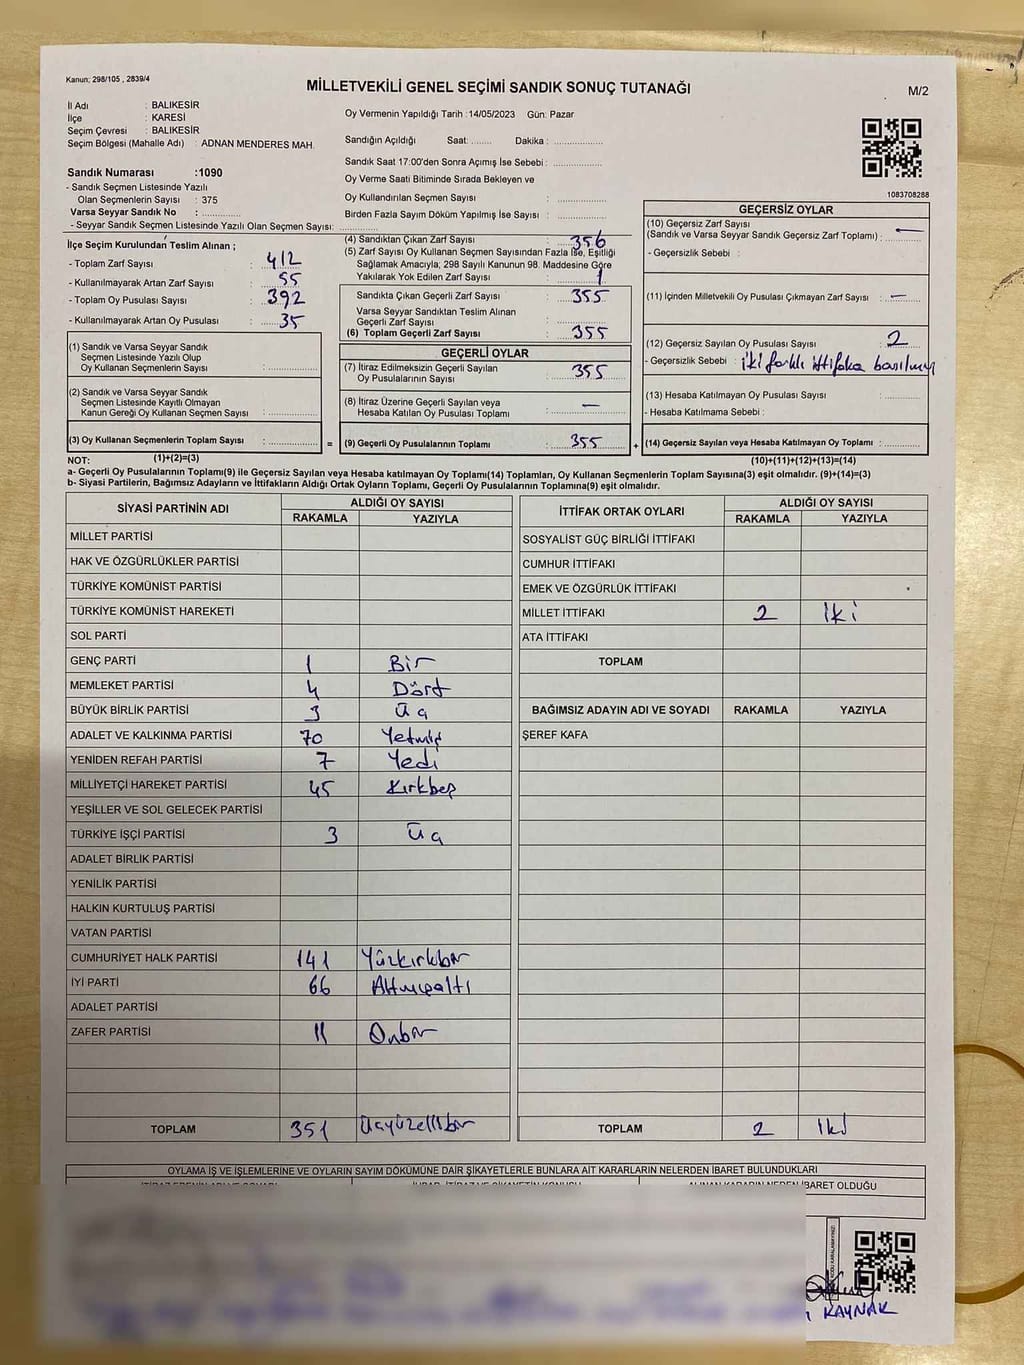 Kanun: 298/105 , 2839/4
MİLLETVEKİLİ GENEL SEÇİMİ SANDIK SONUÇ TUTANAĞI
M/2
İl Adı : BALIKESİR
İlçe : KARESİ
Seçim Çevresi : BALIKESİR
Seçim Bölgesi (Mahalle Adı) : ADNAN MENDERES MAH.
Sandık Numarası :1090
- Sandık Seçmen Listesinde Yazılı
Olan Seçmenlerin Sayısı : 375
Varsa Seyyar Sandık No : ............
- Seyyar Sandık Seçmen Listesinde Yazılı Olan Seçmen Sayısı: ............
Oy Vermenin Yapıldığı Tarih :14/05/2023 Gün: Pazar
Sandığın Açıldığı Saat: ........ Dakika : ............
Sandık Saat 17:00'den Sonra Açımış İse Sebebi : ............
Oy Verme Saati Bitiminde Sırada Bekleyen ve
Oy Kullandırılan Seçmen Sayısı : ............
Birden Fazla Sayım Döküm Yapılmış İse Sayısı : ............
1083708288
İlçe Seçim Kurulundan Teslim Alınan ;
- Toplam Zarf Sayısı : 412
- Kullanılmayarak Artan Zarf Sayısı : 55
- Toplam Oy Pusulası Sayısı : 392
- Kullanılmayarak Artan Oy Pusulası : 35
(1) Sandık ve Varsa Seyyar Sandık
Seçmen Listesinde Yazılı Olup
Oy Kullanan Seçmenlerin Sayısı : ............
(2) Sandık ve Varsa Seyyar Sandık
Seçmen Listesinde Kayıtlı Olmayan
Kanun Gereği Oy Kullanan Seçmen Sayısı : ............
(3) Oy Kullanan Seçmenlerin Toplam Sayısı : ............ =
(1)+(2)=(3)
(4) Sandıktan Çıkan Zarf Sayısı : 356
(5) Zarf Sayısı Oy Kullanan Seçmen Sayısından Fazla İse, Eşitliği
Sağlamak Amacıyla; 298 Sayılı Kanunun 98. Maddesine Göre
Yakılarak Yok Edilen Zarf Sayısı : 1
Sandıkta Çıkan Geçerli Zarf Sayısı : 355
Varsa Seyyar Sandıktan Teslim Alınan
Geçerli Zarf Sayısı : ............
(6) Toplam Geçerli Zarf Sayısı : 355
GEÇERLİ OYLAR
(7) İtiraz Edilmeksizin Geçerli Sayılan
Oy Pusulalarının Sayısı : 355
(8) İtiraz Üzerine Geçerli Sayılan veya
Hesaba Katılan Oy Pusulası Toplamı : —
(9) Geçerli Oy Pusulalarının Toplamı : 355 +
GEÇERSİZ OYLAR
(10) Geçersiz Zarf Sayısı
(Sandık ve Varsa Seyyar Sandık Geçersiz Zarf Toplamı) : —
- Geçersizlik Sebebi :
(11) İçinden Milletvekili Oy Pusulası Çıkmayan Zarf Sayısı : —
(12) Geçersiz Sayılan Oy Pusulası Sayısı : 2
- Geçersizlik Sebebi : iki farklı ittifaka basılmış
(13) Hesaba Katılmayan Oy Pusulası Sayısı : ............
- Hesaba Katılmama Sebebi :
(14) Geçersiz Sayılan veya Hesaba Katılmayan Oy Toplamı : ............
(10)+(11)+(12)+(13)=(14)
NOT:
a- Geçerli Oy Pusulalarının Toplamı(9) ile Geçersiz Sayılan veya Hesaba katılmayan Oy Toplamı(14) Toplamları, Oy Kullanan Seçmenlerin Toplam Sayısına(3) eşit olmalıdır. (9)+(14)=(3)
b- Siyasi Partilerin, Bağımsız Adayların ve İttifakların Aldığı Ortak Oyların Toplamı, Geçerli Oy Pusulalarının Toplamına(9) eşit olmalıdır.
SİYASİ PARTİNİN ADI ALDIĞI OY SAYISI
RAKAMLA YAZIYLA
MİLLET PARTİSİ
HAK VE ÖZGÜRLÜKLER PARTİSİ
TÜRKİYE KOMÜNİST PARTİSİ
TÜRKİYE KOMÜNİST HAREKETİ
SOL PARTİ
GENÇ PARTİ 1 Bir
MEMLEKET PARTİSİ 4 Dört
BÜYÜK BİRLİK PARTİSİ 3 Üç
ADALET VE KALKINMA PARTİSİ 70 Yetmiş
YENİDEN REFAH PARTİSİ 7 Yedi
MİLLİYETÇİ HAREKET PARTİSİ 45 Kırkbeş
YEŞİLLER VE SOL GELECEK PARTİSİ
TÜRKİYE İŞÇİ PARTİSİ 3 Üç
ADALET BİRLİK PARTİSİ
YENİLİK PARTİSİ
HALKIN KURTULUŞ PARTİSİ
VATAN PARTİSİ
CUMHURİYET HALK PARTİSİ 141 Yüzkırkbir
İYİ PARTİ 66 Altmışaltı
ADALET PARTİSİ
ZAFER PARTİSİ 11 Onbir
TOPLAM 351 Üçyüzellibir
İTTİFAK ORTAK OYLARI ALDIĞI OY SAYISI
RAKAMLA YAZIYLA
SOSYALİST GÜÇ BİRLİĞİ İTTİFAKI
CUMHUR İTTİFAKI
EMEK VE ÖZGÜRLÜK İTTİFAKI
MİLLET İTTİFAKI 2 İki
ATA İTTİFAKI
TOPLAM
BAĞIMSIZ ADAYIN ADI VE SOYADI RAKAMLA YAZIYLA
ŞEREF KAFA
TOPLAM 2 İki
OYLAMA İŞ VE İŞLEMLERİNE VE OYLARIN SAYIM DÖKÜMÜNE DAİR ŞİKAYETLERLE BUNLARA AİT KARARLARIN NELERDEN İBARET BULUNDUKLARI
ALINAN KARARIN NEDEN İBARET OLDUĞU
KAYNAK